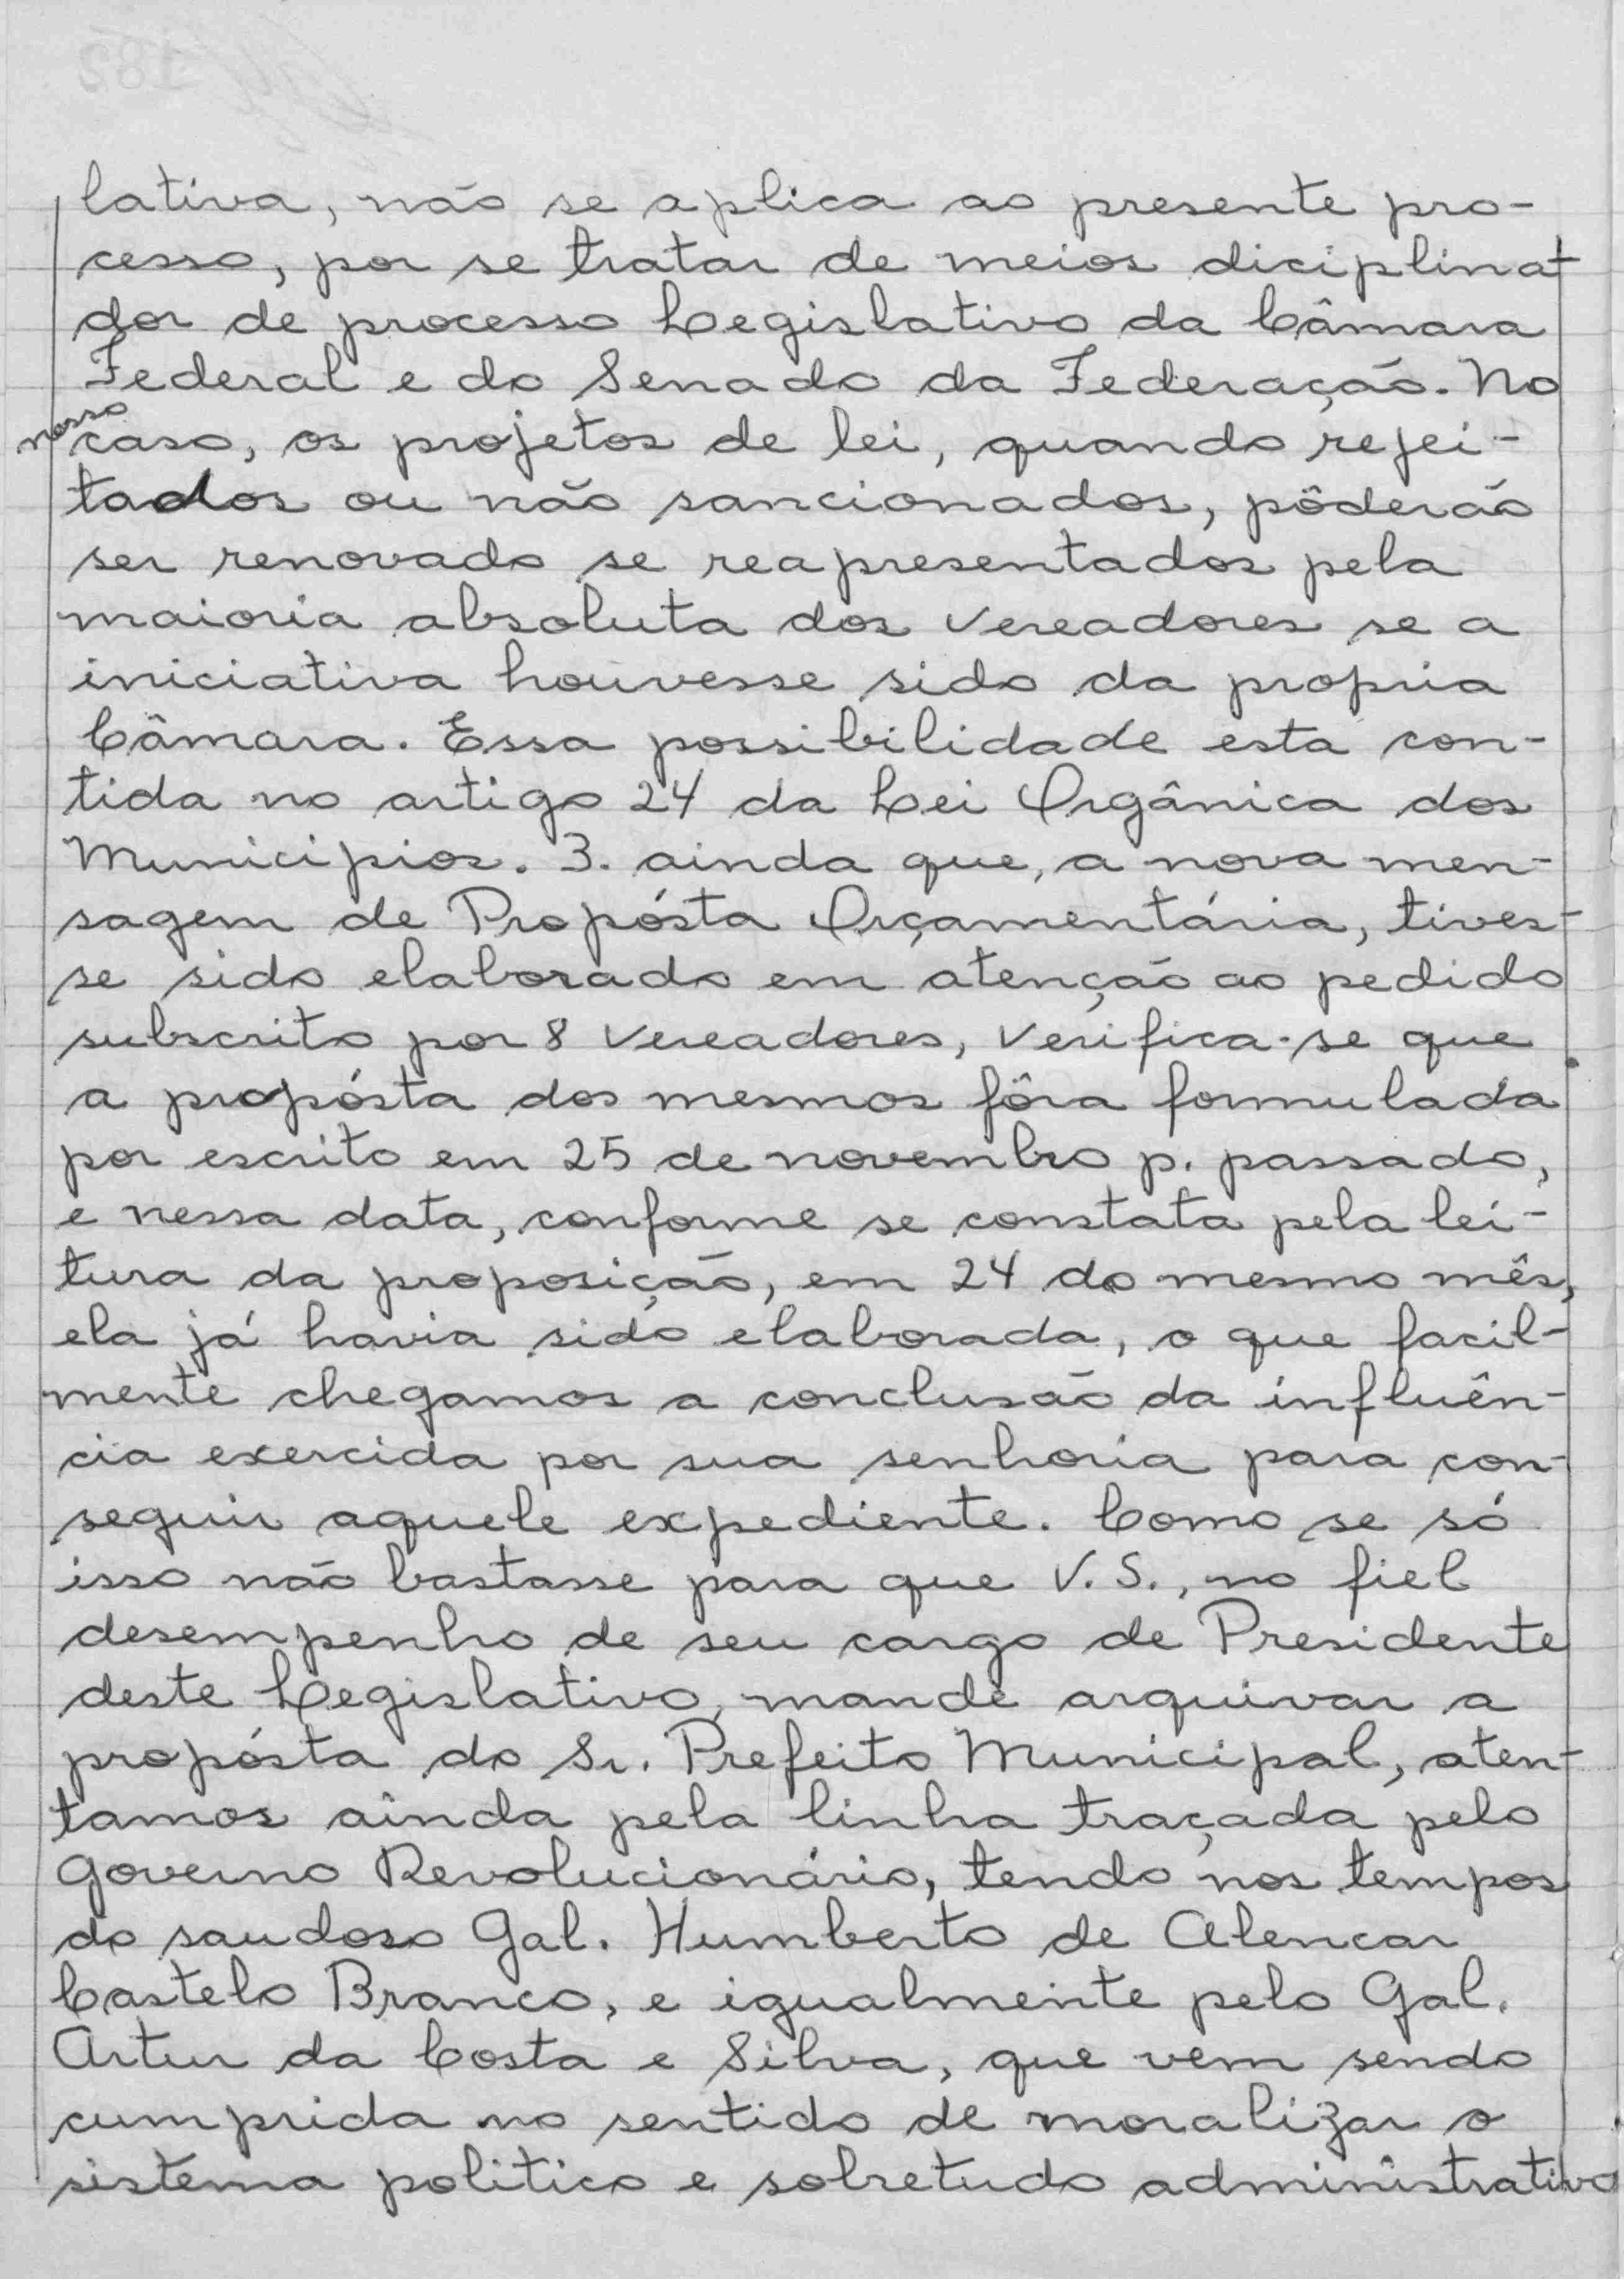 lativa, não se aplica ao presente pro-
cesso, por se tratar de meios diciplina-
dor de processo Legislativo da Câmara
Federal e do Senado da Federação. No
nosso caso, os projetos de lei, quando rejei-
tados ou não sancionados, pôderão
ser renovado se reapresentados pela
maioria absoluta dos Vereadores se a
iniciativa houvesse sido da propria
Câmara. Essa possibilidade esta con-
tida no artigo 24 da Lei Orgânica dos
Municipios. 3. ainda que, a nova men-
sagem de Propósta Orçamentária, tives-
se sido elaborado em atenção ao pedido
subscrito por 8 Vereadores, Verifica-se que
a propósta dos mesmos fôra formulada
por escrito em 25 de novembro p. passado,
e nessa data, conforme se constata pela lei-
tura da proposição, em 24 do mesmo mês,
ela já havia sido elaborada, o que facil-
mente chegamos a conclusão da influên-
cia exercida por sua senhoria para con-
seguir aquele expediente. Como se só
isso não bastasse para que V.S., no fiel
desempenho de seu cargo de Presidente
deste Legislativo, mande arquivar a
propósta do Sr. Prefeito Municipal, aten-
tamos ainda pela linha traçada pelo
Governo Revolucionário, tendo nos tempos
do saudoso Gal. Humberto de Alencar
Castelo Branco, e igualmente pelo Gal.
Artur da Costa e Silva, que vem sendo
cumprida no sentido de moralizar o
sistema politico e sobretudo administrativo